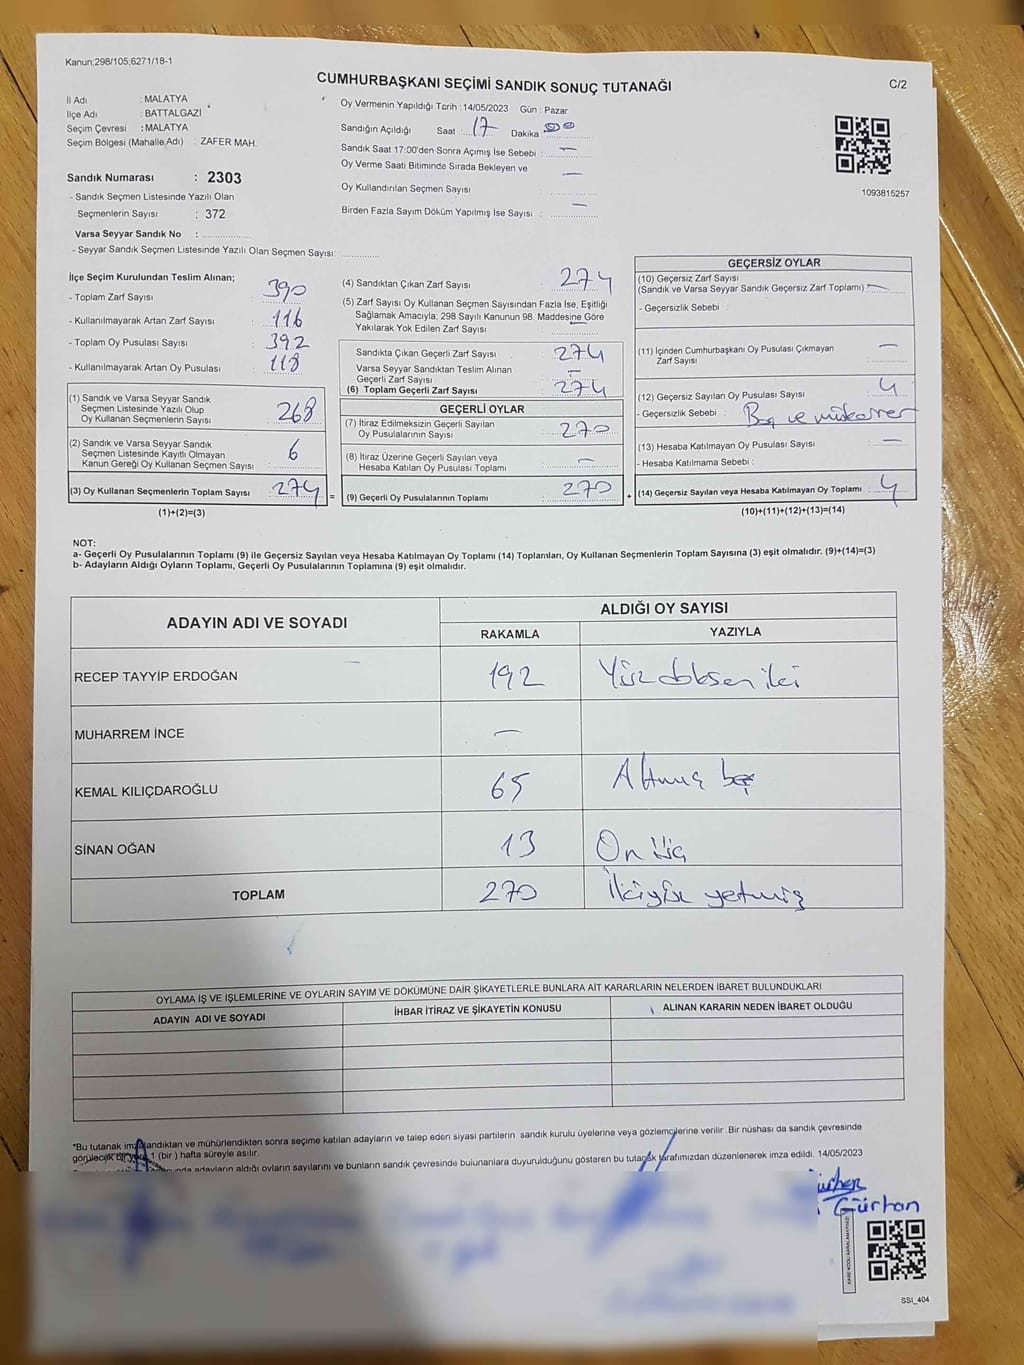 Kanun;298/105;6271/18-1
CUMHURBAŞKANI SEÇİMİ SANDIK SONUÇ TUTANAĞI
C/2
İl Adı : MALATYA
İlçe Adı : BATTALGAZİ
Seçim Çevresi : MALATYA
Seçim Bölgesi (Mahalle Adı) : ZAFER MAH.
Sandık Numarası : 2303
- Sandık Seçmen Listesinde Yazılı Olan
Seçmenlerin Sayısı : 372
Varsa Seyyar Sandık No :
- Seyyar Sandık Seçmen Listesinde Yazılı Olan Seçmen Sayısı:
Oy Vermenin Yapıldığı Tarih : 14/05/2023 Gün : Pazar
Sandığın Açıldığı Saat : 17 Dakika 00
Sandık Saat 17:00'den Sonra Açımış İse Sebebi : —
Oy Verme Saati Bitiminde Sırada Bekleyen ve —
Oy Kullandırılan Seçmen Sayısı :
Birden Fazla Sayım Döküm Yapılmış İse Sayısı : —
1093815257
İlçe Seçim Kurulundan Teslim Alınan;
- Toplam Zarf Sayısı : 390
- Kullanılmayarak Artan Zarf Sayısı : 116
- Toplam Oy Pusulası Sayısı : 392
- Kullanılmayarak Artan Oy Pusulası : 118
(1) Sandık ve Varsa Seyyar Sandık
Seçmen Listesinde Yazılı Olup
Oy Kullanan Seçmenlerin Sayısı : 268
(2) Sandık ve Varsa Seyyar Sandık
Seçmen Listesinde Kayıtlı Olmayan
Kanun Gereği Oy Kullanan Seçmen Sayısı : 6
(3) Oy Kullanan Seçmenlerin Toplam Sayısı : 274 =
(1)+(2)=(3)
(4) Sandıktan Çıkan Zarf Sayısı : 274
(5) Zarf Sayısı Oy Kullanan Seçmen Sayısından Fazla İse, Eşitliği
Sağlamak Amacıyla; 298 Sayılı Kanunun 98. Maddesine Göre
Yakılarak Yok Edilen Zarf Sayısı : —
Sandıkta Çıkan Geçerli Zarf Sayısı : 274
Varsa Seyyar Sandıktan Teslim Alınan
Geçerli Zarf Sayısı : —
(6) Toplam Geçerli Zarf Sayısı : 274
GEÇERLİ OYLAR
(7) İtiraz Edilmeksizin Geçerli Sayılan
Oy Pusulalarının Sayısı : 270
(8) İtiraz Üzerine Geçerli Sayılan veya
Hesaba Katılan Oy Pusulası Toplamı : —
(9) Geçerli Oy Pusulalarının Toplamı : 270 +
GEÇERSİZ OYLAR
(10) Geçersiz Zarf Sayısı
(Sandık ve Varsa Seyyar Sandık Geçersiz Zarf Toplamı) : —
- Geçersizlik Sebebi :
(11) İçinden Cumhurbaşkanı Oy Pusulası Çıkmayan
Zarf Sayısı : —
(12) Geçersiz Sayılan Oy Pusulası Sayısı : 4
- Geçersizlik Sebebi : Boş ve mükerrer
(13) Hesaba Katılmayan Oy Pusulası Sayısı : —
- Hesaba Katılmama Sebebi :
(14) Geçersiz Sayılan veya Hesaba Katılmayan Oy Toplamı : 4
(10)+(11)+(12)+(13)=(14)
NOT:
a- Geçerli Oy Pusulalarının Toplamı (9) ile Geçersiz Sayılan veya Hesaba Katılmayan Oy Toplamı (14) Toplamları, Oy Kullanan Seçmenlerin Toplam Sayısına (3) eşit olmalıdır. (9)+(14)=(3)
b- Adayların Aldığı Oyların Toplamı, Geçerli Oy Pusulalarının Toplamına (9) eşit olmalıdır.
ADAYIN ADI VE SOYADI ALDIĞI OY SAYISI
RAKAMLA YAZIYLA
RECEP TAYYİP ERDOĞAN 192 Yüz doksan iki
MUHARREM İNCE —
KEMAL KILIÇDAROĞLU 65 Altmış beş
SİNAN OĞAN 13 On üç
TOPLAM 270 İkiyüz yetmiş
OYLAMA İŞ VE İŞLEMLERİNE VE OYLARIN SAYIM VE DÖKÜMÜNE DAİR ŞİKAYETLERLE BUNLARA AİT KARARLARIN NELERDEN İBARET BULUNDUKLARI
ADAYIN ADI VE SOYADI İHBAR İTİRAZ VE ŞİKAYETİN KONUSU ALINAN KARARIN NEDEN İBARET OLDUĞU
*Bu tutanak imzalandıktan ve mühürlendikten sonra seçime katılan adayların ve talep eden siyasi partilerin sandık kurulu üyelerine veya gözlemcilerine verilir. Bir nüshası da sandık çevresinde
görülecek bir yere 1 (bir) hafta süreyle asılır.
adayların aldığı oyların sayılarını ve bunların sandık çevresinde bulunanlara duyurulduğunu gösteren bu tutanak tarafımızdan düzenlenerek imza edildi. 14/05/2023
Gürhan
KARE KODU KARALAMAYINIZ
SSİ_404